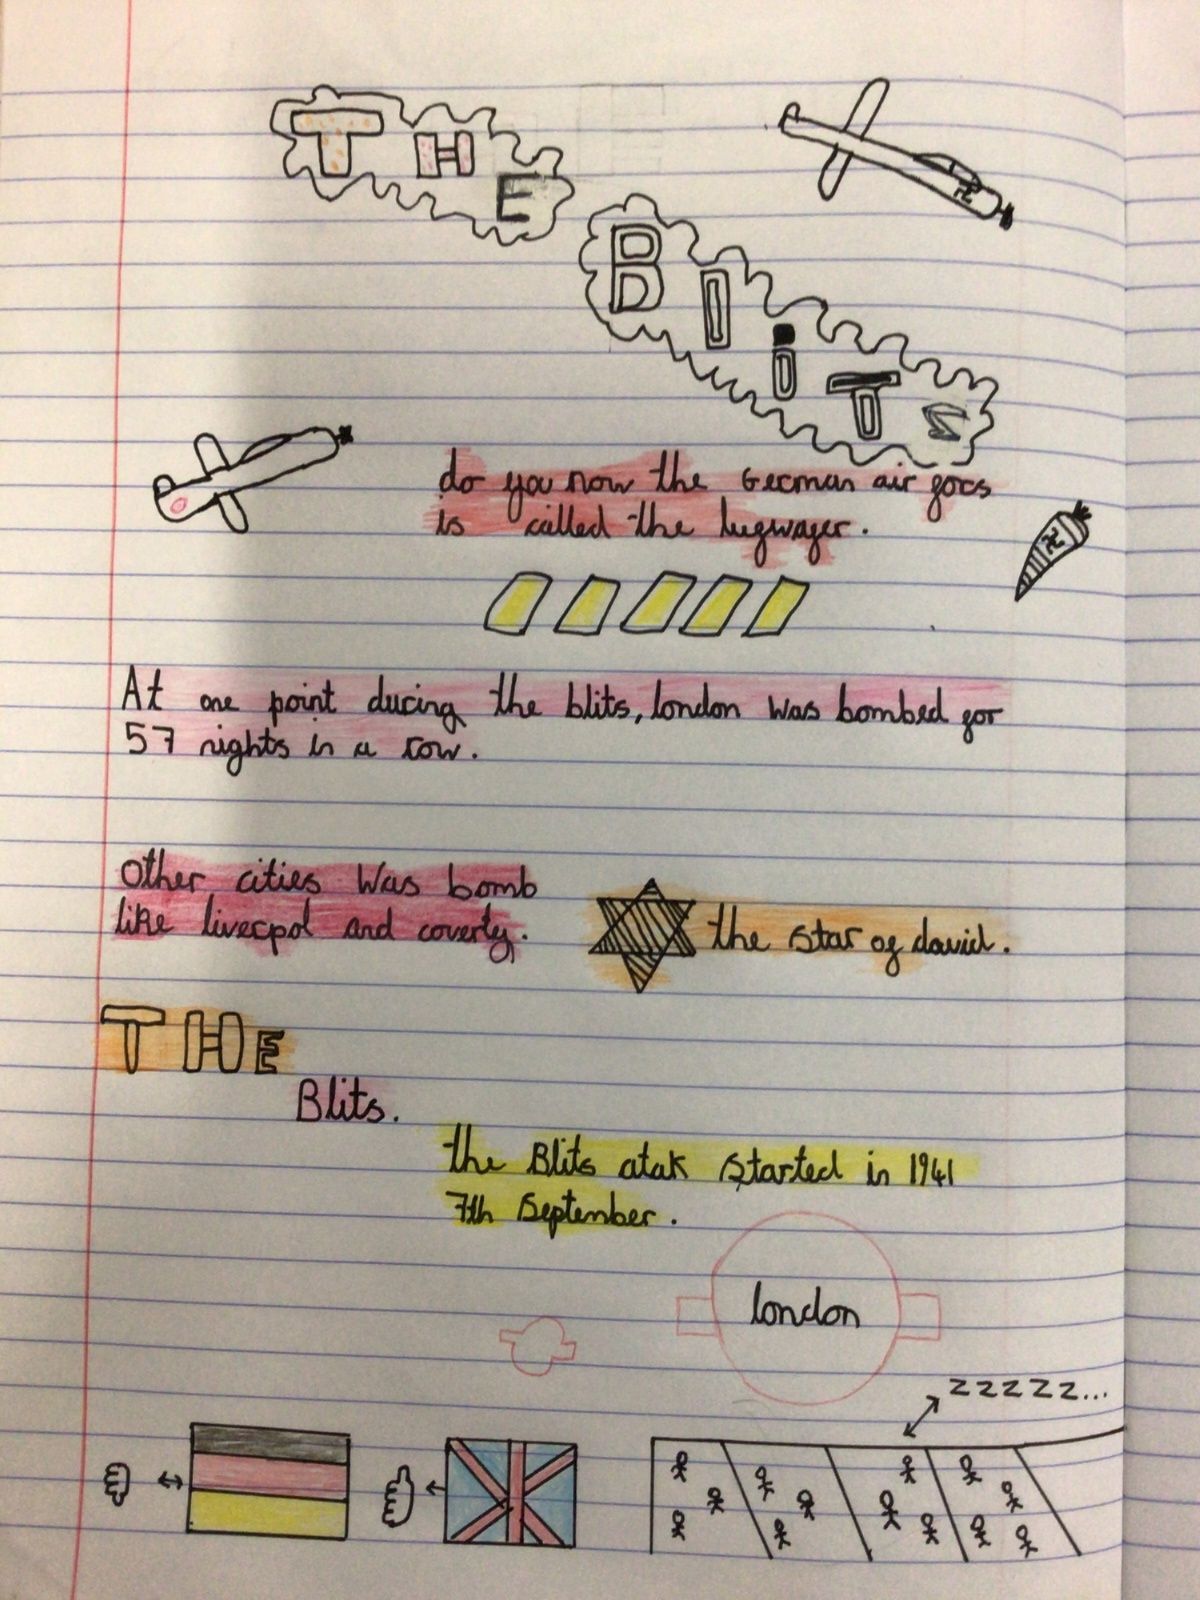 THE
BliTs
do you now the German air fors
is called the lugwafer.
At one point during the blits, london was bombed for
57 nights in a row.
Other cities Was bomb
like liverpol and coverty.
the star of david.
THE
Blits.
the Blits atak started in 1941
7th September.
london
zzzzz...